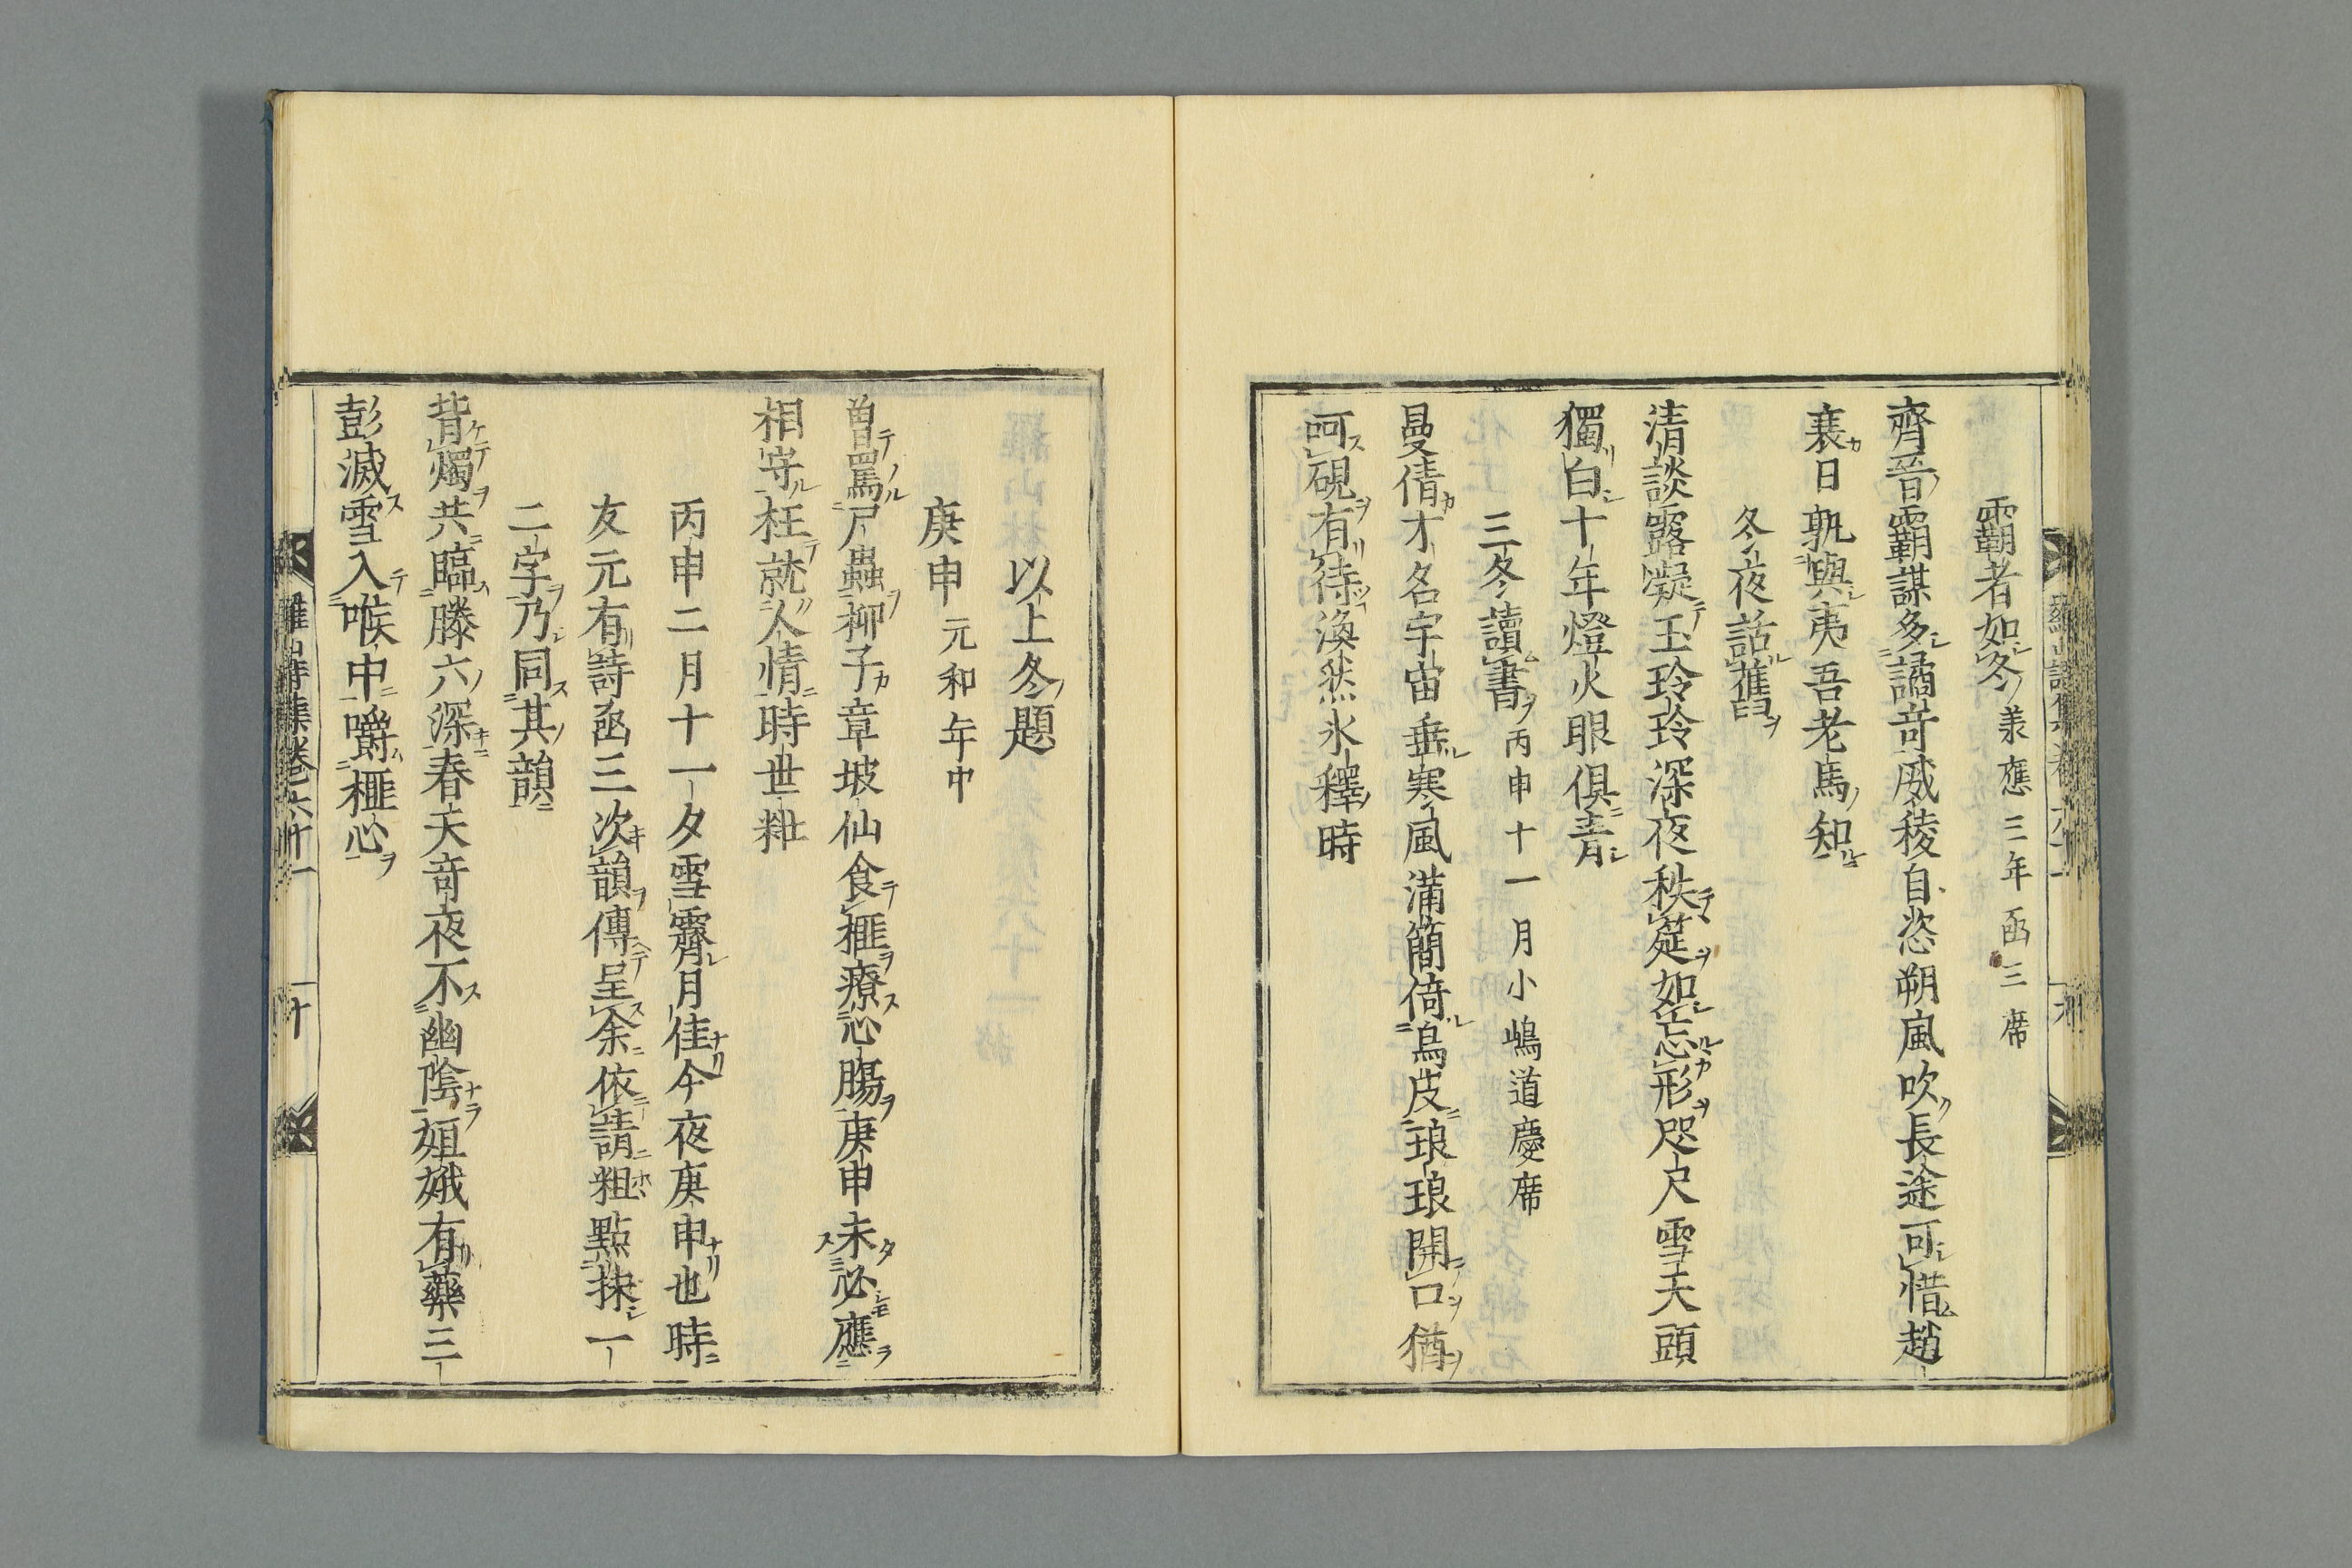 霸者如冬 承應三年函三席
齊晉霸謀多譎奇威稜自恣朔風吹長途可惜趙
衰日孰與夷吾老馬知
冬夜話舊
清談露凝玉玲玲深夜秩筵如忘形咫尺雪天頭
獨白十年燈火眼俱青
三冬讀書 丙申十一月小嶋道慶席
曼倩才名宇宙垂寒風滿簡倚烏皮琅琅開口猶
呵硯有待渙然氷釋時
以上冬題
庚申 元和年中
曽罵尸蟲柳子章坡仙食榧療心膓庚申未必應
相守枉就人情時世粧
丙申二月十一夕雪霽月佳今夜庚申也時
友元有詩函三次韻傳呈余依請粗點抹一
二字乃同其韻
背燭共臨滕六深春天奇夜不幽陰姮娥有藥三
彭滅雪入喉中嚼榧心
羅山詩集卷六十一 十